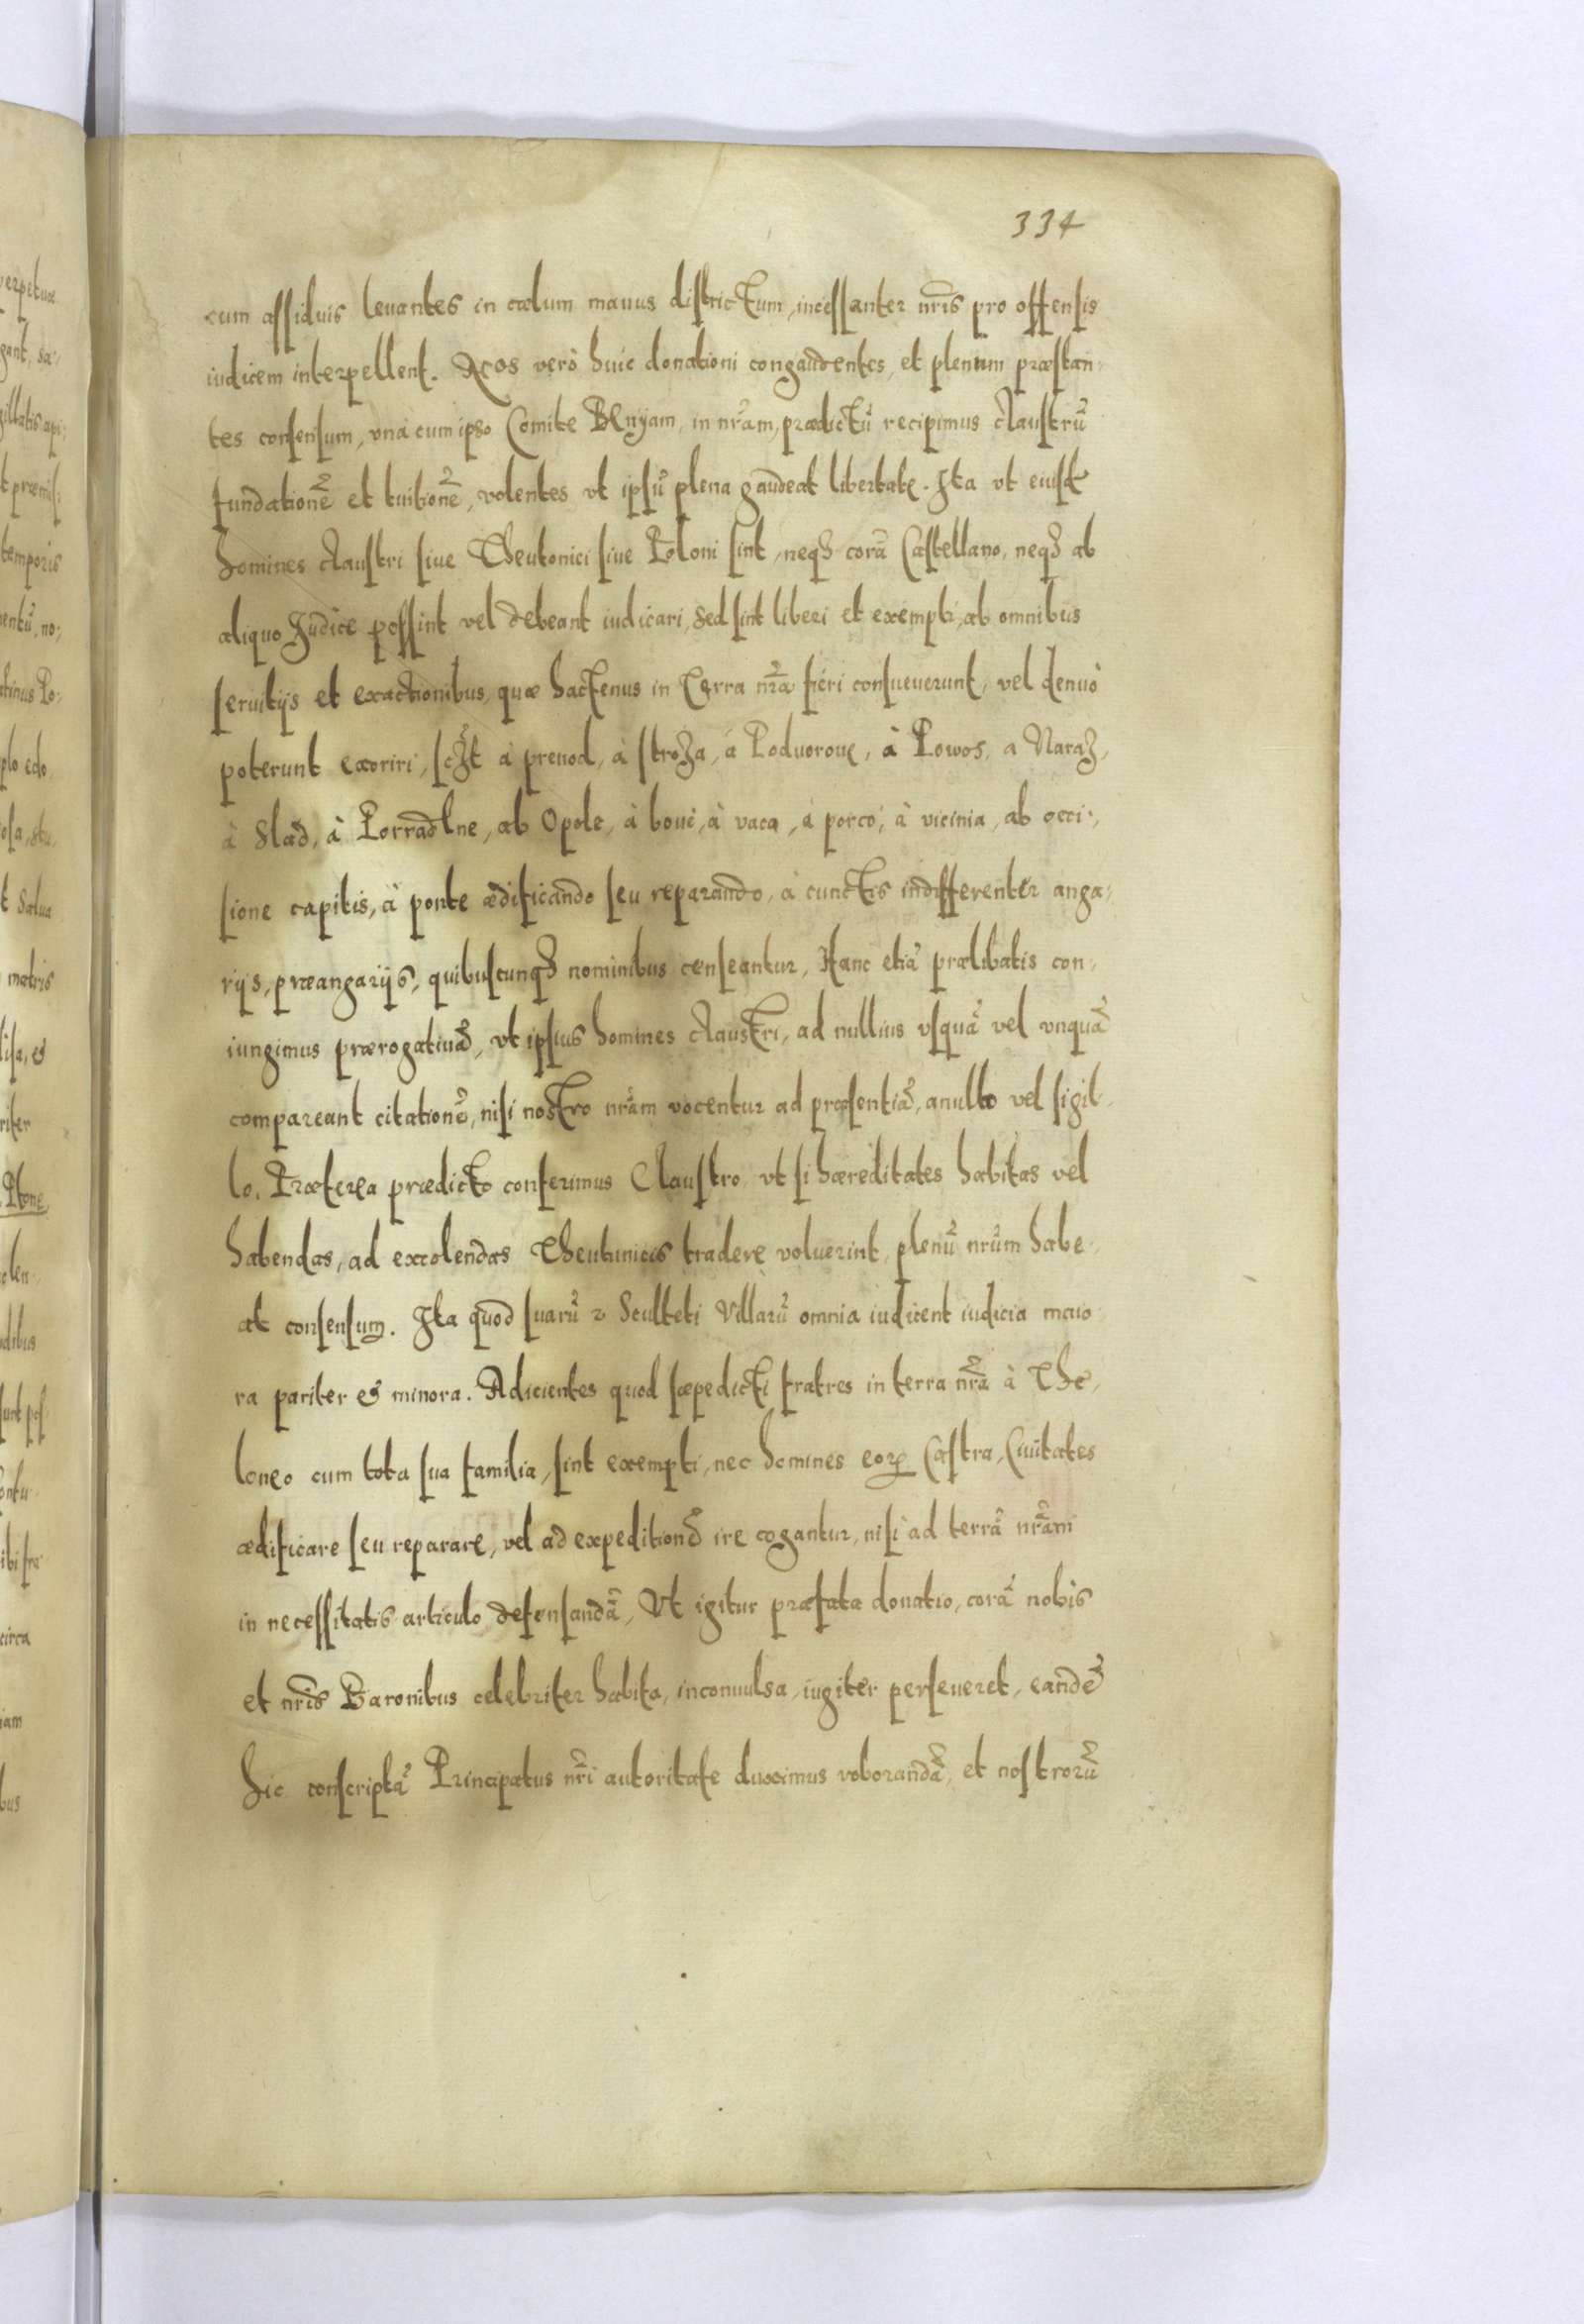 334
cum assiduis leuantes in cælum manus districtum, incessanter nr̃is pro offensis
iudicem interpellent. Nos verò huic donationi congaudentes, et plenum præstan-
tes consensum, vna cum ipso Comite Benyam, in nr̃am, prædictũ recipimus claustrũ
fundationẽ et tuitionẽ, volentes vt ipsũ plena gaudeat libertate. Ita vt eiusd
homines claustri siue Theutonici siue Poloni sint, neqꝫ corã Castellano, neqꝫ ab
aliquo Iudice possint vel debeant iudicari, sed sint liberi et exempti, ab omnibus
seruitijs et exactionibus, quæ hactenus in Terra nr̃a fieri consueuerunt, vel denuò
poterunt exoriri, sclꝫt à preuod, à stroza, à Poduoroue, à Powos, a Naraz,
à Slad, à Porradlne, ab Opole, à boue, à vaca, à porco, à vicinia, ab occi-,
sione capitis, à ponte ædificando seu reparando, à cunctis indifferenter anga-
rijs, præangarijs, quibuscunqꝫ nominibus censeantur, Hanc etiã prælibatis con-
iungimus prærogatiuã, vt ipsius homines claustri, ad nullius vsquã vel vnquã
compareant citationẽ, nisi nostro nr̃am vocentur ad præsentiã, anullo vel sigil-
lo. Præterea prædicto conferimus Claustro vt si hæreditates habitas vel
habendas, ad excolendas Theutunicis tradere voluerint, plenũ nr̃um habe-
at consensum. Ita quod suarũ Sculteti Villarũ omnia iudicent iudicia maio-
ra pariter et minora. Adicientes quod sæpedicti fratres in terra nr̃a à The-
loneo cum tota sua familia, sint exempti, nec homines eorꝝ Castra, Ciuitates
ædificare seu reparare, vel ad expeditionẽ ire cogantur, nisi ad terrã nr̃am
in necessitatis articulo defensandã, Vt igitur præfata donatio, corã nobis
et nr̃is Baronibus celebriter habita, inconuulsa, iugiter perseueret, eandẽ
hic conscriptã Principatus nr̃i autoritate duximus roborandã, et nostrorũ